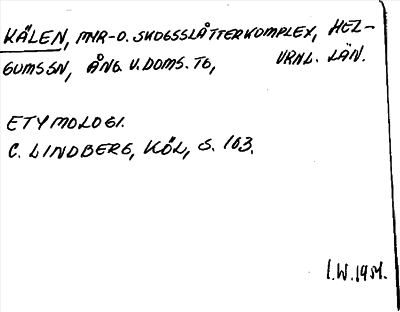 KÄLEN, MYR-O. SKOGSSLÅTTERKOMPLEX, HEL-
GUMSSN, ÅNG. V. DOMS. TG, VRNL. LÄN.
ETYMOLOGI.
C. LINDBERG, KÖL, S. 163.
I.W. 1951.